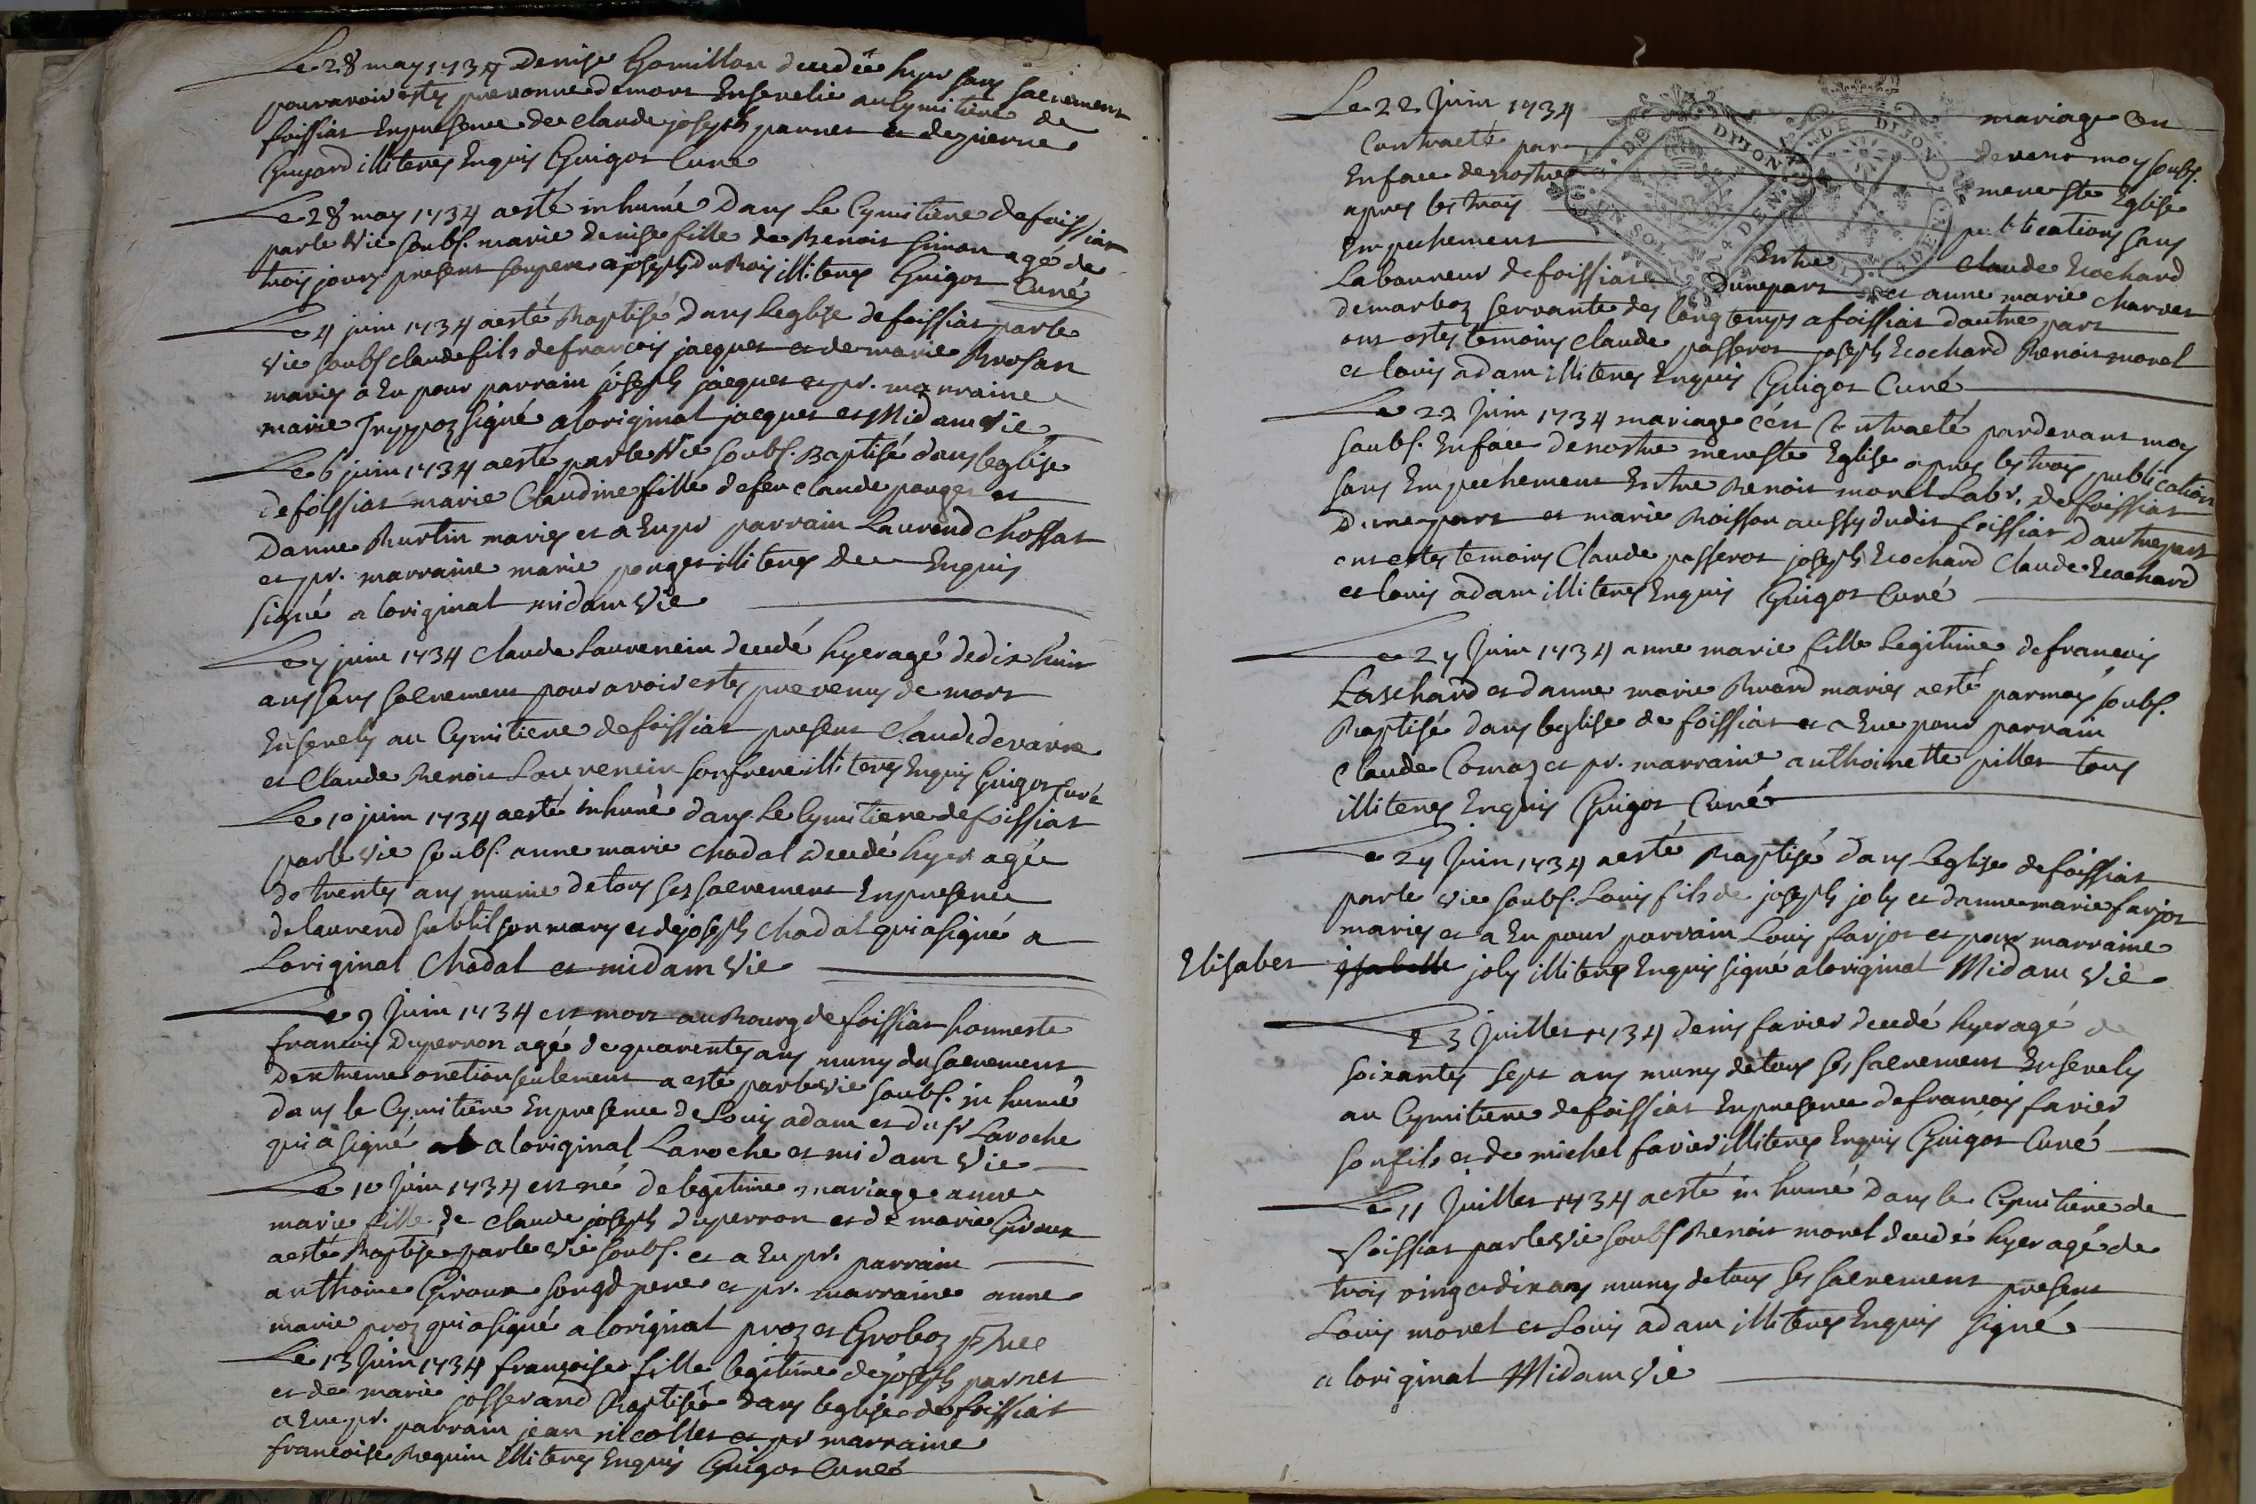 Le 28 may 1734 Denise Gomillon decedée hyer sans sacrement
pour avoir estés prevenue de mort Ensevelie au Cymitiere de
foissiat En presence de claude joseph parnet et de pierre
Guyard illiteres Enquis Guigot Curé
Le 28 may 1734 a esté inhumé Dans Le Cymitiere de foissiat
par le Vic soubs. marie denise fille de Benoit simon agé de
trois jours present son pere et joseph du Bois illiteres Guigot Curé
Le 4 juin 1734 a esté Baptisé Dans Leglise de foissiat par le
Vic soubs claude fils de francois jacquet et de marie Brosan
mariés a Eu pour parrain joseph jacquet et pr. marraine
marie signé a loriginal jacquet et Midam Vic
Le 6 juin 1734 a esté par le Vic soubs. Baptisé dans leglise
de foissiat marie Claudine fille de feu claude ponget et
Danne Burtin mariés et a Eu pr parrain Laurend Chossat
et pr. marraine marie ponget illiteres de ce Enquis
signé a loriginal midam Vic
Le 7 juin 1734 Claude Laurencin decedé hyer agé de dix huit
ans sans sacrement pour avoir estés prevenus de mort
Ensevely au Cymitiere de foissiat present Claude devarre
et Claude Benoit Laurencin son frere illiteres Enquis Guigot Curé
Le 10 juin 1734 a esté inhumé dans Le Cymitiere de foissiat
par le vic soubs. anne marie Chadal decedé hyer agée
de trentes ans munie de tous ses sacrement En presence
de laurend subtil son mary et de joseph Chadal qui a signé a
Loriginal Chadal et midam Vic
Le 9 Juin 1734 est mort au Bourg de foissiat honneste
francois Duperron agé de quarentes ans muny du sacrement
Dextreme onction seulement a esté par le vic soubs. in humé
dans le Cymitiere En presence de Louis adam et du sr Laroche
qui a signé a loriginal Laroche et midam Vic
Le 10 Juin 1734 est né de legitime mariage anne
marie fille de Claude joseph duperron et de marie Giroux
a esté Baptisé par le Vic soubs. et a Eu pr. parrain
anthoine Giroux son gd pere et pr. marraine anne
marie proz qui a signé a loriginal proz et Groboz
Le 13 Juin 1734 francoise fille legitime de joseph parnet
et de marie josserand Baptisée dans leglise de foissiat
a Eu pr. parrain jean nicollet et pr marraine
francoise Requin illiteres Enquis Guigot Curé
Le 22 Juin 1734 mariage Est
Contracté par devant moy soubs.
En face de nostre mere ste Eglise
apres les trois publications sans
Empechement Entre Claude Ecochard
Laboureur de foissiat d'une part et anne marie Charvet
de marboz servante des longtemps a foissiat d'autre part
ont estes temoins claude passerot joseph Ecochard Benoit morel
et louis adam illiteres Enquis Guigot Curé
Le 22 Juin 1734 mariage cest Contracté pardevant moy
soubs. En face de nostre mere ste Eglise apres les trois publication
sans Empechement Entre Benoit morel Labr. de foissiat
D'une part et marie Boisson aussy dudit foissiat D'autre part
ont estes temoins Claude passerot joseph Ecochard Claude Ecochard
et louis adam illiteres Enquis Guigot Curé
Le 27 Juin 1734 anne marie fille Legitime de francois
Laschard et danne marie Buard mariés a esté par moy soubs.
Baptisé dans leglise de foissiat et a Eue pour parrain
Claude Comaz et pr. marraine anthoinette pillet tous
illiteres Enquis Guigot Curé
Le 27 Juin 1734 a esté Baptisé dans Leglise de foissiat
par le vic soubs. Louis fils de joseph joly et danne marie farjot
mariés et a Eu pour parrain Louis farjot et pour marraine
Elisabet jsabelle joly illiteres Enquis signé a loriginal Midam Vic
Le 3 Juillet 1734 denis favier decedé hyer agé de
soixantes sept ans muny de tous ses sacrement Ensevely
au Cymitiere de foissiat En presence de francois favier
son fils et de michel favier illiteres Enquis Guigot Curé
Le 11 Juillet 1734 a esté in humé dans le Cymitiere de
foissiat par le vic soubs Benoit morel decedé hyer agé de
trois vingt et dix ans muny de tous ses sacrement present
Louis morel et Louis adam illiteres Enquis signé
a loriginal Midam Vic